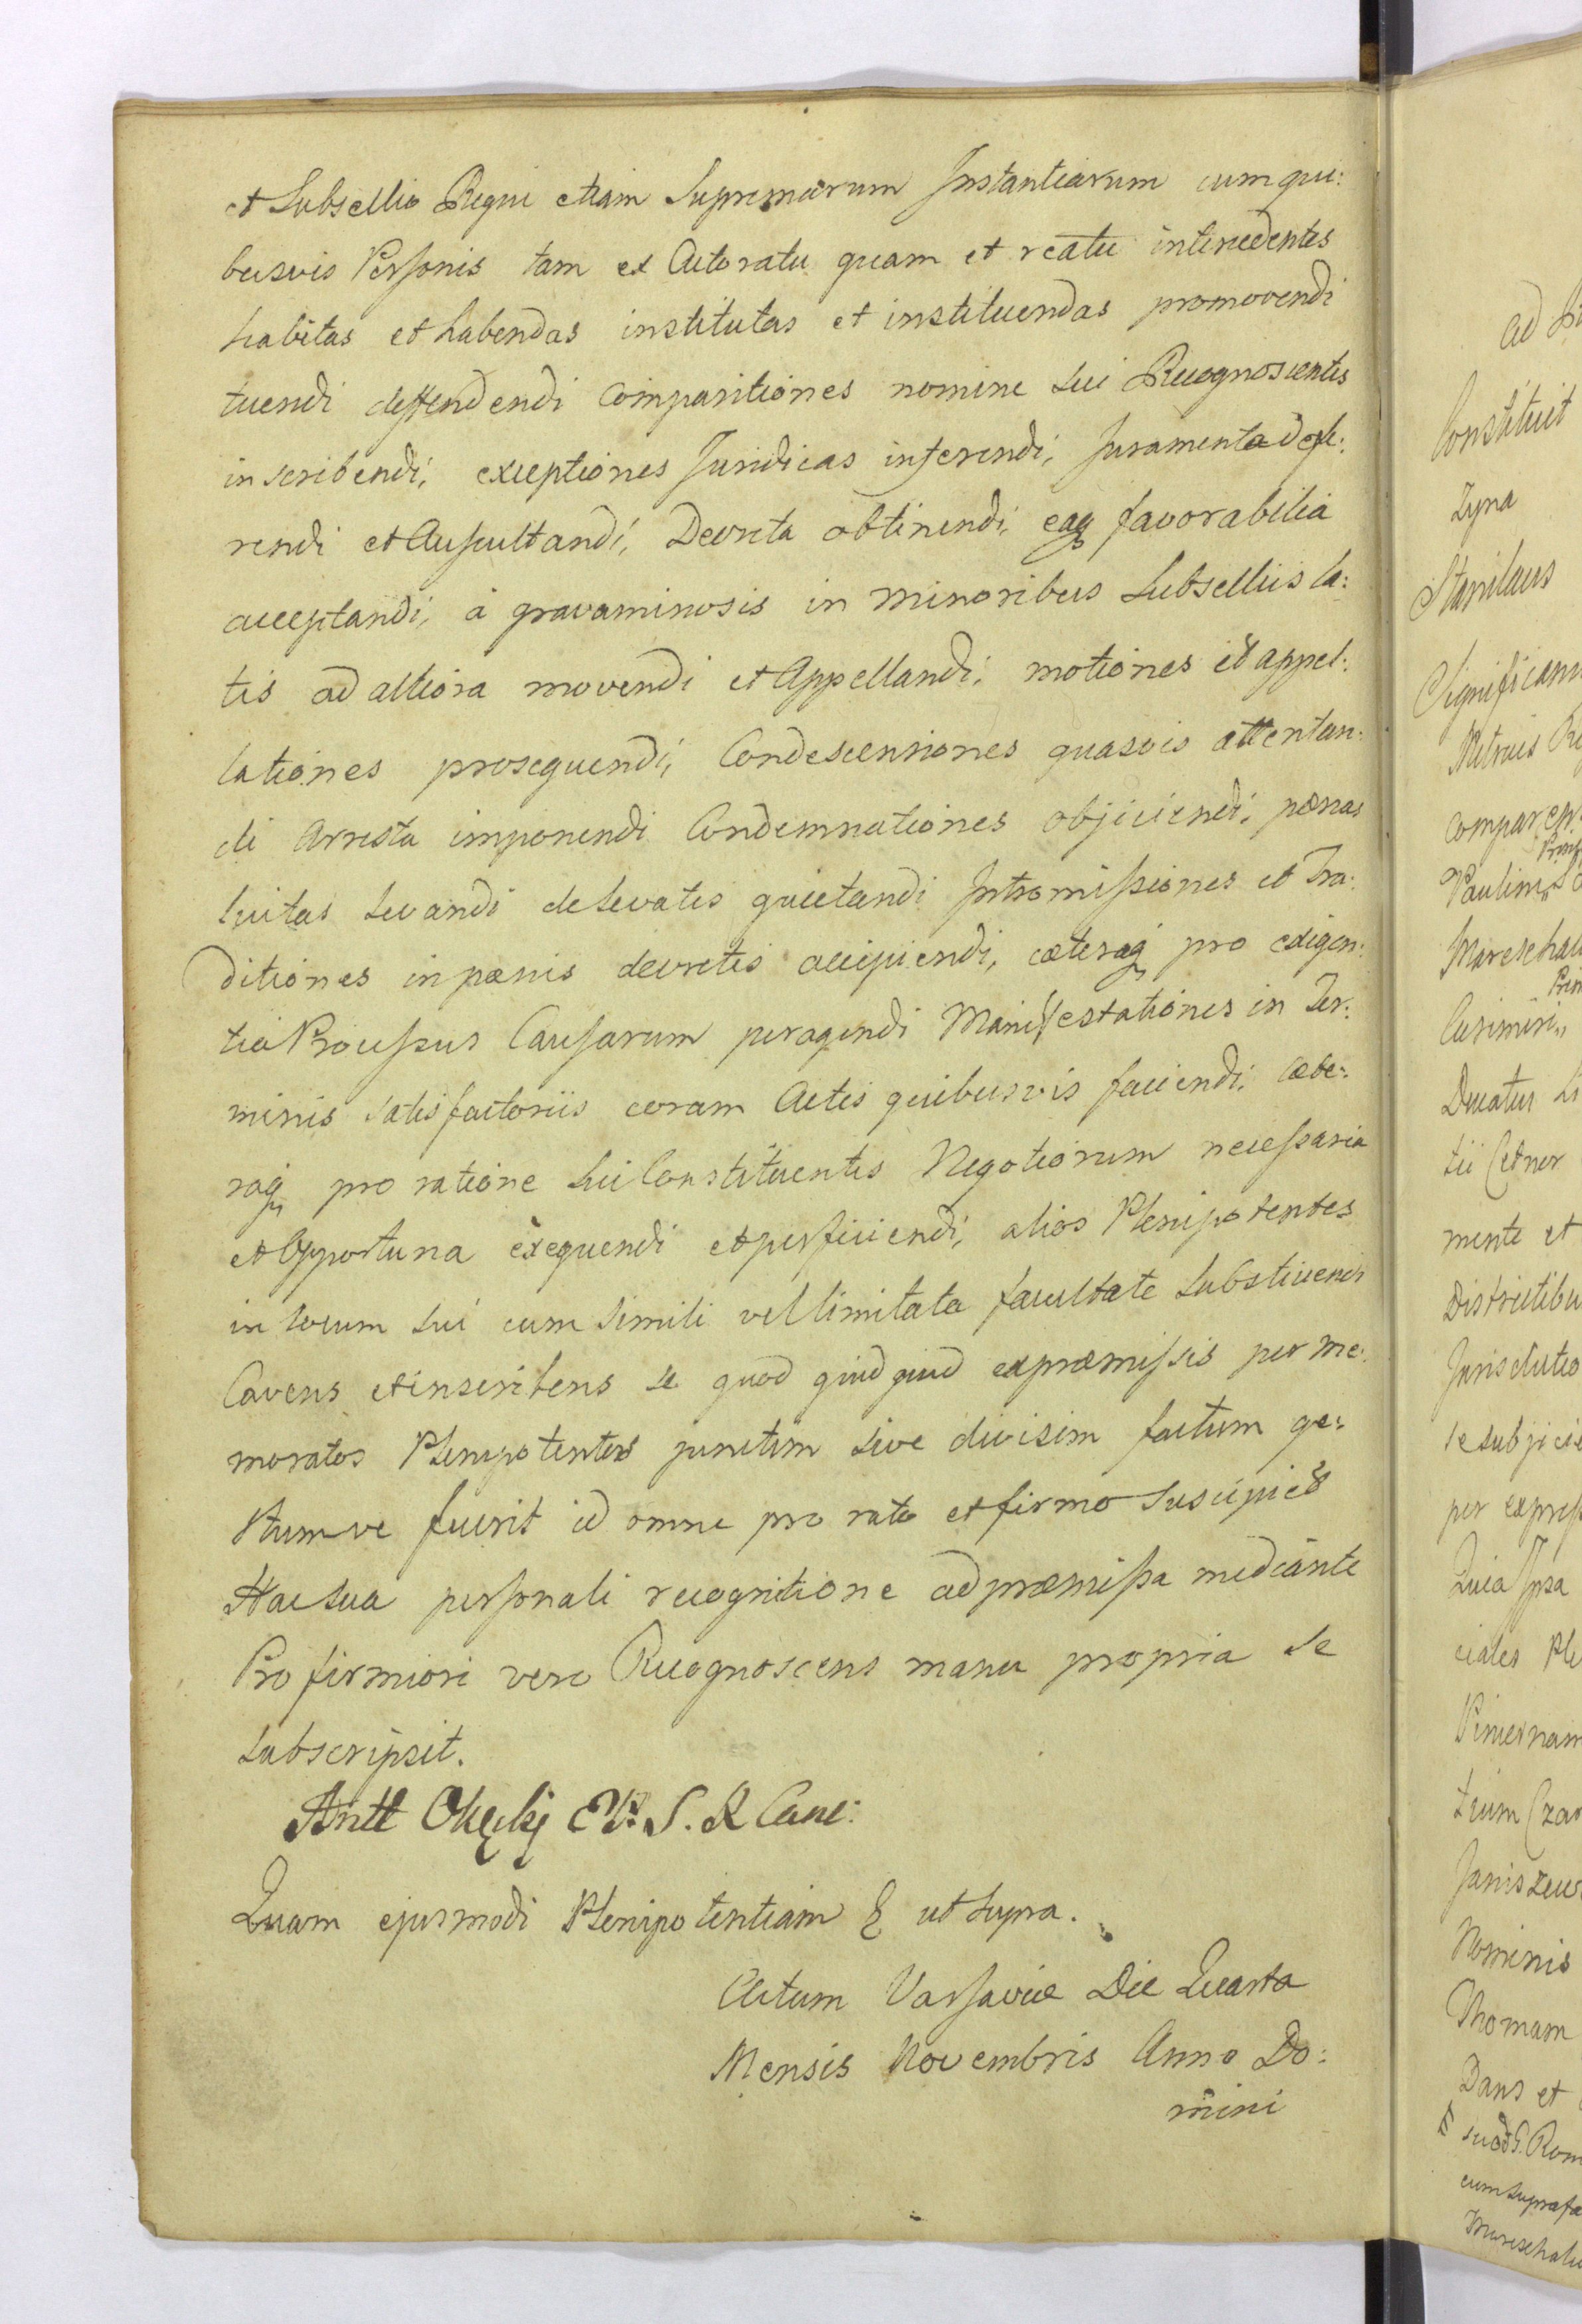 et Subsellio Regni etiam Supremarum Instantiarum cum qui:
busvis Personis tam ex Actoratu quam et reatu intercedentes
habitas et habendas institutas et instituendas promovendi
tuendi deffendendi Comparitiones nomine Sui Recognoscentis
inscribendi, exceptiones Juridicas inferendi, Juramenta defe:
rendi et Auscultandi, Decreta obtinendi, eaq favorabilia
acceptandi, à gravaminosis in minoribus Subselliis la:
tis ad altiora movendi et Appellandi, motiones et appel:
lationes prosequendi, Condescensiones quasvis attentan:
di Arresta imponendi Condemnationes objiciendi, pœnas
luitas levandi de levatis quietandi Intromissiones et Tra:
ditiones in pœnis decretis accipiendi, cæteraq pro exigen:
tia Processus Causarum peragendi Manifestationes in Ter:
minis satisfactoriis coram Actis quibusvis faciendi, cæte:
raq pro ratione Sui Constituentis Negotiorum necessaria
et Opportuna exequendi et perficiendi, alios Plenipotentes
in locum Sui cum simili vel limitata facultate Substiuendi
Cavens et inscribens se quod quidquid ex præmissis per me:
moratos Plenipotentes junctim sive divisim factum ge:
stumve fuerit id omne pro rato et firmo suscipiet
Hac sua personali recognitione ad præmissa mediante
Pro firmiori vero Recognoscens manu propria se
subscripsit.
Antt Okęcki EP. S. R Canc:
Quam ejusmodi Plenipotentiam & ut supra.
Actum Varsaviæ Die Quarta
Mensis Novembris Anno Do:
mini
ad
Constituit
Zyna
Stanilaus
Significam
compar
Ducatus
mente et
Districtibu
se subjicie
Quia Ipsa
Nominis
Thomam
Dans et